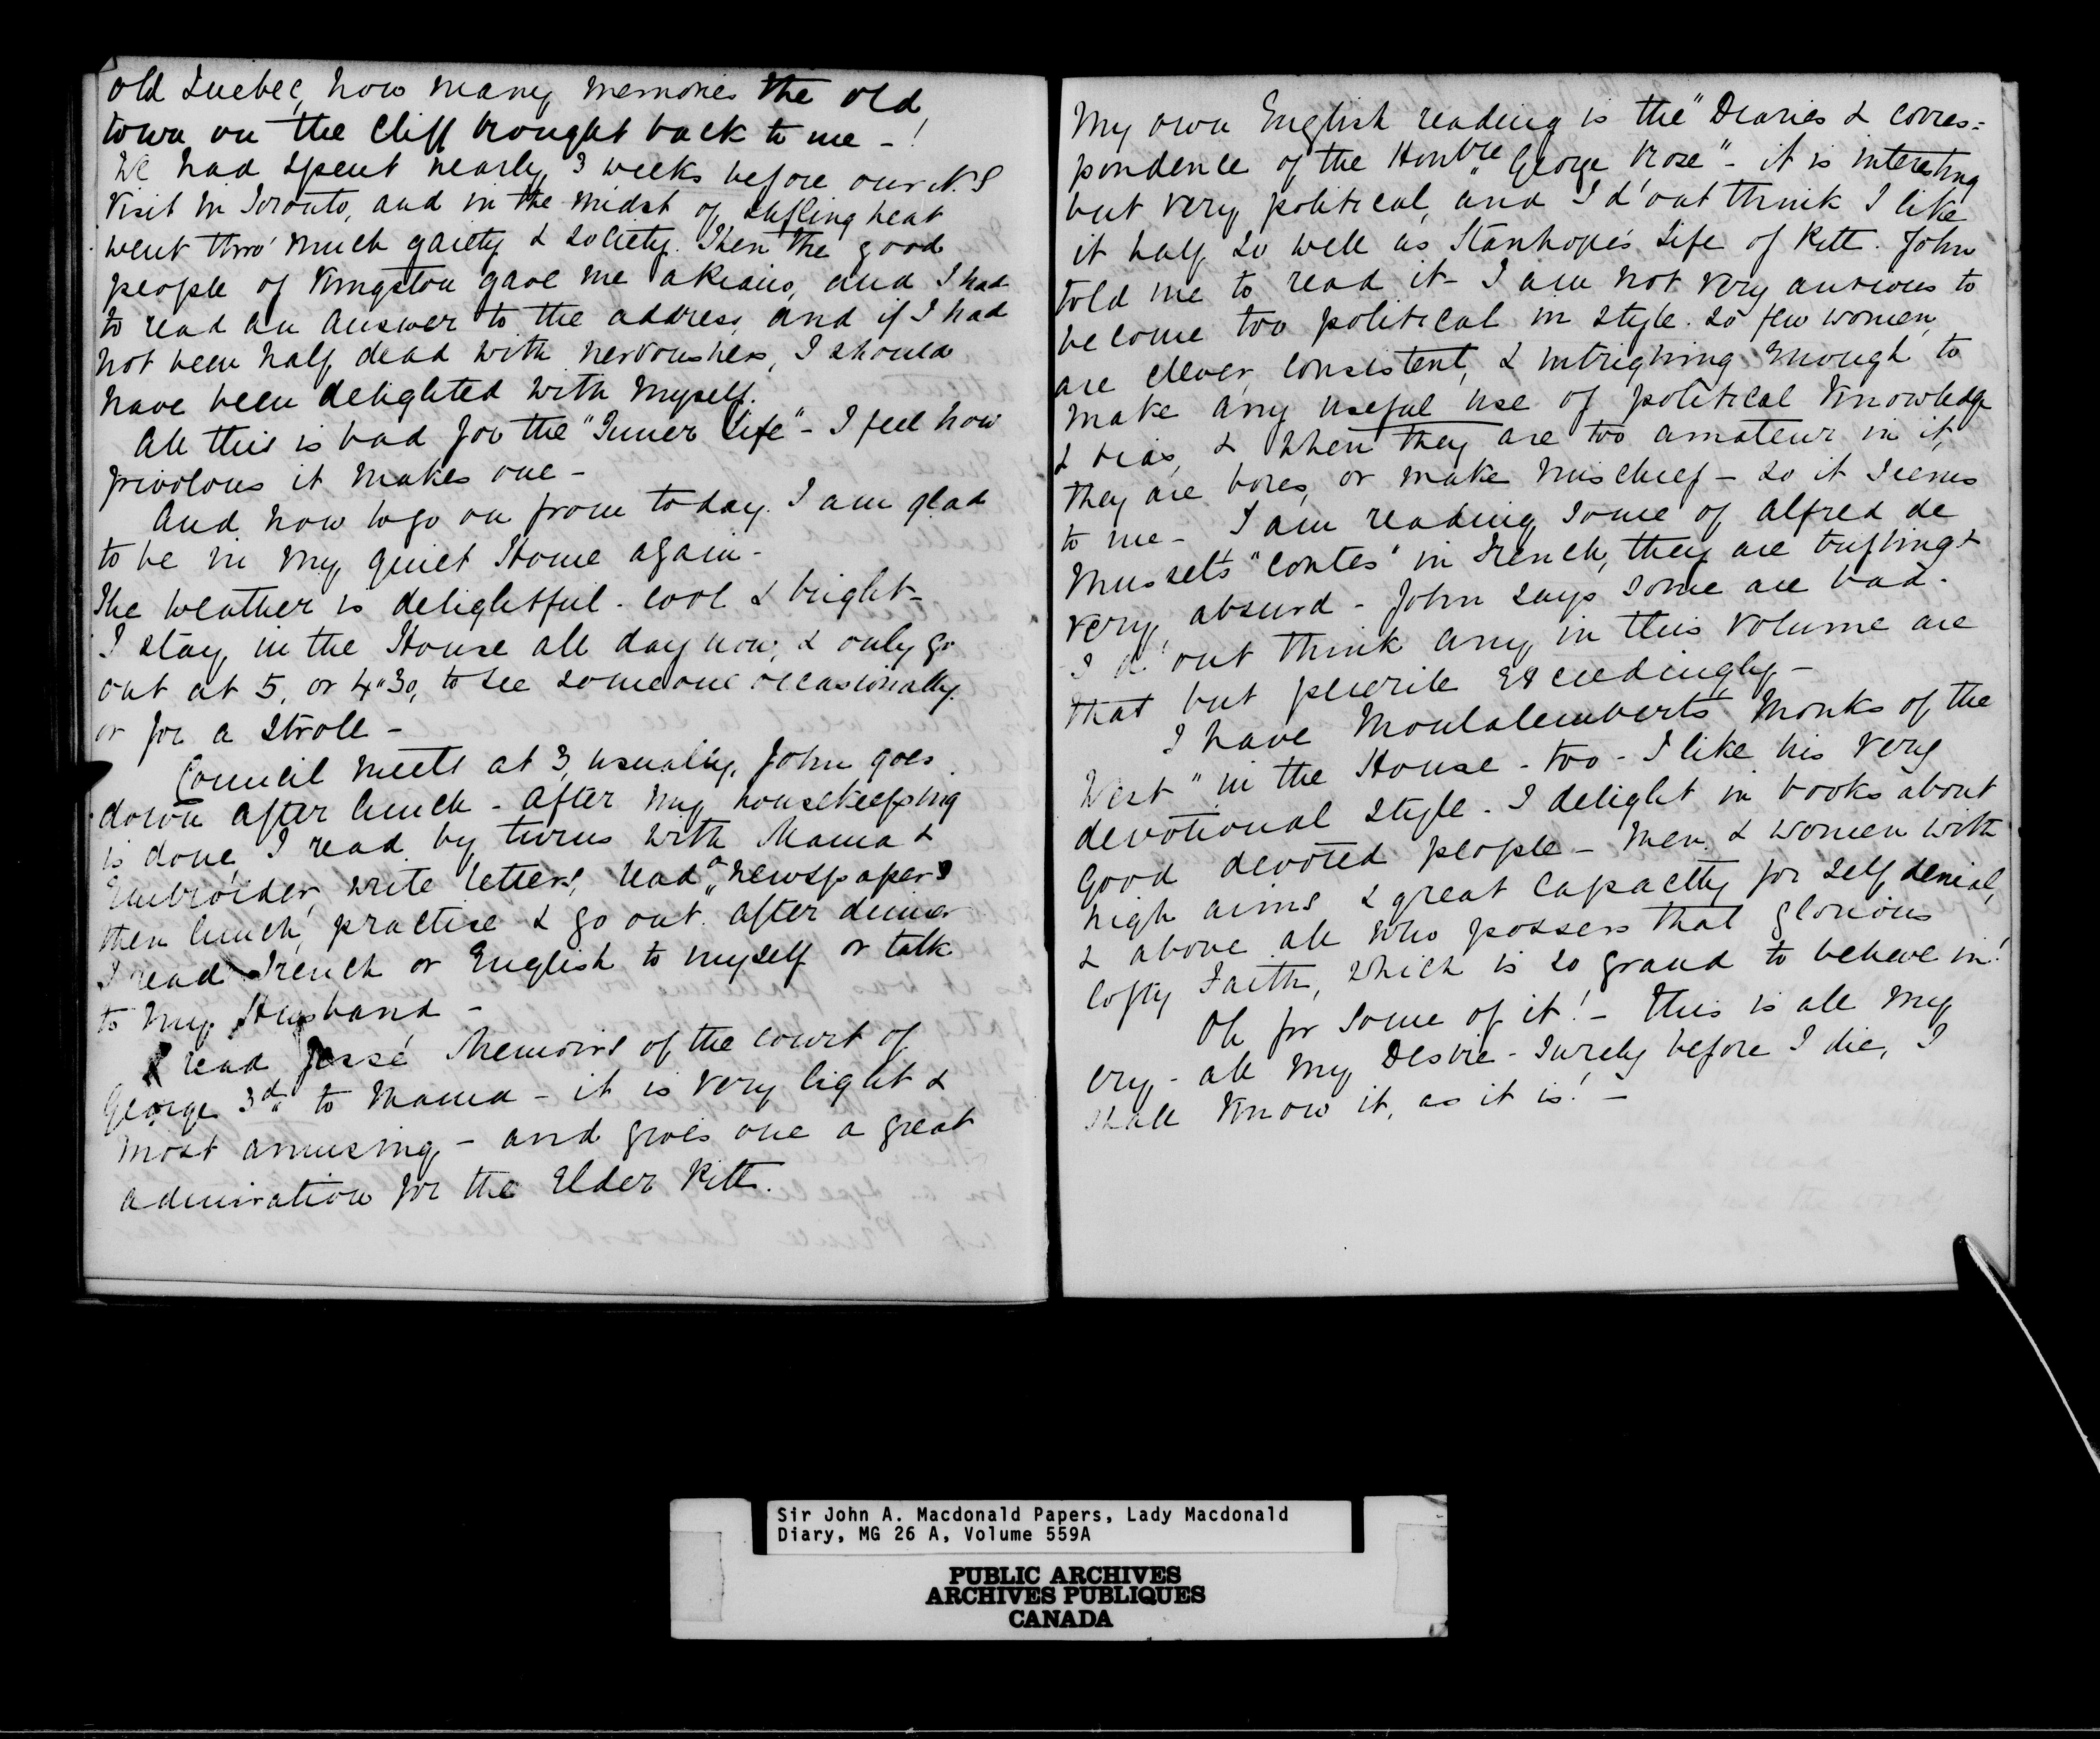 old Quebec, how many memories the old
town on the Cliff brought back to me - !
We had spent nearly 3 weeks before our N.S
visit in Toronto, and in the midst of stifling heat
went thro' much gaiety & society. Then the good
people of Kingston gave me a Piano, and I had
to read an answer to the address, and if I had
not been half dead with nervousness, I should
have been delighted with myself.
All this is bad for the "Inner Life" - I feel how
frivolous it makes one -
And now to go on from today. I am glad
to be in my quiet Home again -
The weather is delightful - cool & bright -
I stay in the House all day now, & only go
out at 5, or 4"30, to see someone occasionally
or for a stroll -
Council meets at 3, usually, John goes
down after lunch - After my housekeeping
is done, I read by turns with Mama &
Embroider, write letters, read a newspaper
then lunch, practise & go out. After dinner
I read French or English to myself or talk
to my Husband -
I read Jesse Memoirs of the court of
George 3d to Mama - it is very light &
most amusing - and gives one a great
admiration for the Elder Pitt.
My own English reading is the "Diaries & corres=
pondence of the Honble George Rose" - it is interesting
but very political, and I d'ont think I like
it half so well as Stanhope's Life of Pitt. John
told me to read it - I am not very anxious to
become too political in style. So few women
are clever, consistent, & intriguing enough to
make any useful use of political knowledge
& bias, & when they are too amateur in it,
they are bores, or make mischief - so it seems
to me - I am reading some of Alfred de
Mussets "Contes" in French, they are trifling &
very absurd - John says some are bad.
I d'ont think any in this volume are
that but puerile Exceedingly -
I have Montalemberts Monks of the
West" in the House - too - I like his very
devotional style. I delight in books about
Good devoted people - Men & women with
high aims & great capacity for self denial,
& above all who possess that glorious
lofty Faith, which is so grand to believe in!
Oh for some of it! - This is all my
cry - all my Desire - Surely before I die, I
shall know it, as it is! -
Sir John A. Macdonald Papers, Lady Macdonald
Diary, MG 26 A, Volume 559A
PUBLIC ARCHIVES
ARCHIVES PUBLIQUES
CANADA